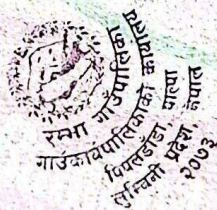 रम्भा गाउँपालिका
गाउँकार्यपालिकाको कार्यालय
पिपलडाँडा पाल्पा
लुम्बिनी प्रदेश नेपाल
२०७३